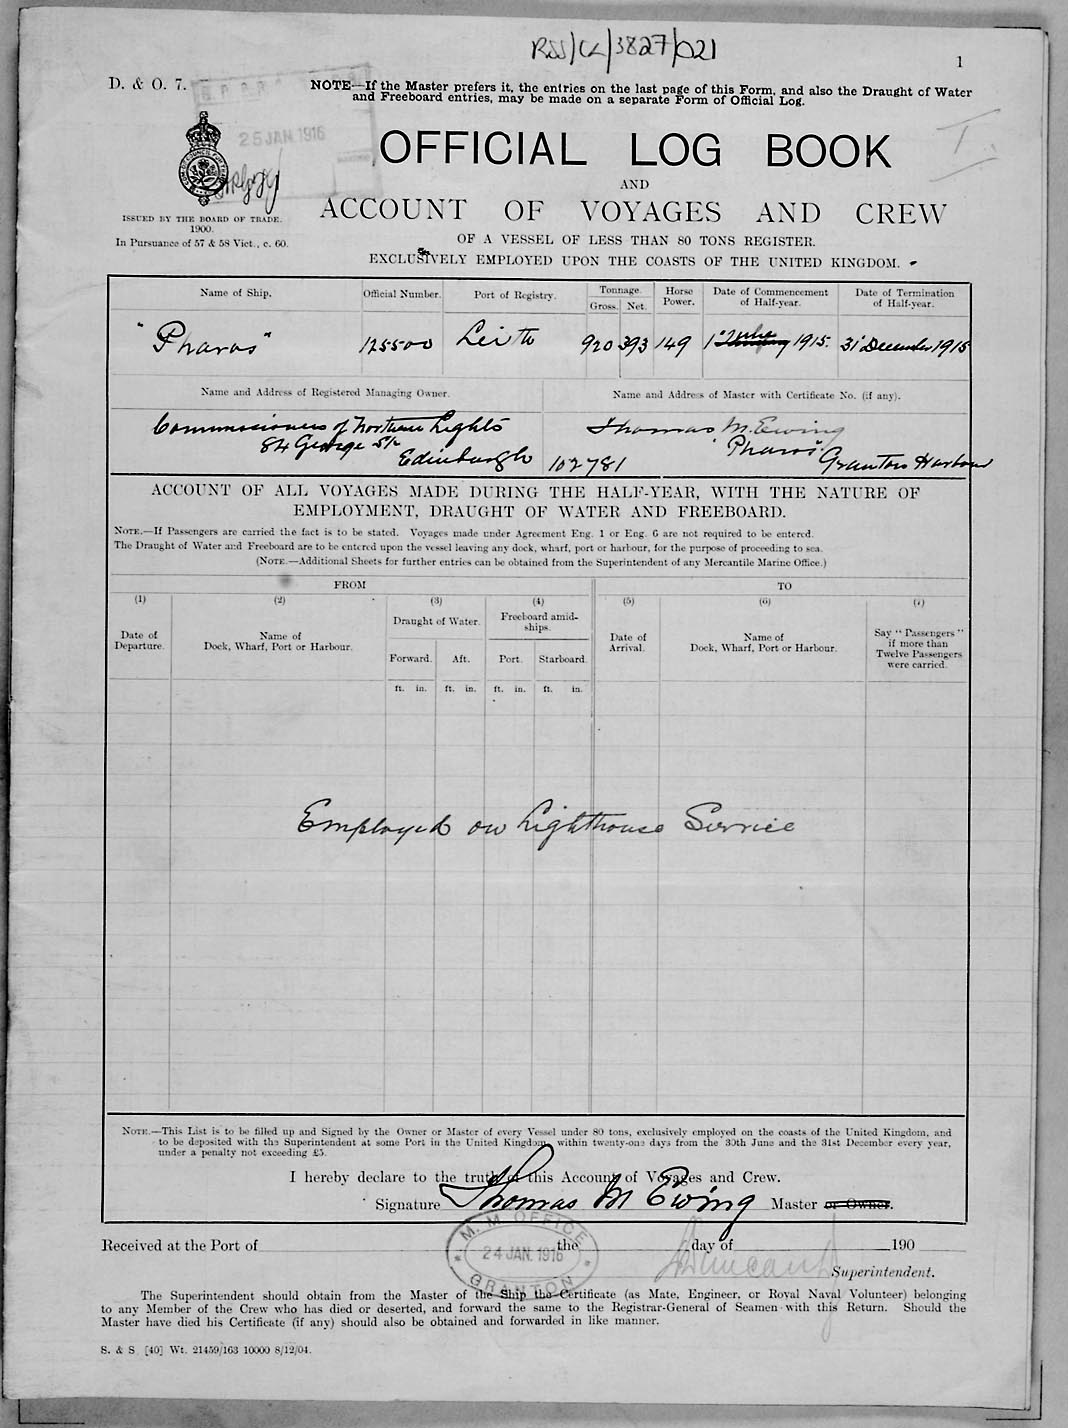 RSS/CL/3827/021
1
D. & O. 7.
NOTE—If the Master prefers it, the entries on the last page of this Form, and also the Draught of Water
and Freeboard entries, may be made on a separate Form of Official Log.
25 JAN. 1916
OFFICIAL LOG BOOK
AND
ACCOUNT OF VOYAGES AND CREW
ISSUED BY THE BOARD OF TRADE.
1900.
In Pursuance of 57 & 58 Vict., c. 60.
OF A VESSEL OF LESS THAN 80 TONS REGISTER.
EXCLUSIVELY EMPLOYED UPON THE COASTS OF THE UNITED KINGDOM.
Name of Ship. Official Number. Port of Registry. Tonnage. Gross. Net. Horse Power. Date of Commencement of Half-year. Date of Termination of Half-year.
"Pharos" 125500 Leith 920 393 149 1st July 1915. 31st December 1915
Name and Address of Registered Managing Owner. Name and Address of Master with Certificate No. (if any).
Commissioners of Northern Lights Thomas M. Ewing
84 George St. "Pharos"
Edinburgh 102781 Granton Harbour
ACCOUNT OF ALL VOYAGES MADE DURING THE HALF-YEAR, WITH THE NATURE OF
EMPLOYMENT, DRAUGHT OF WATER AND FREEBOARD.
NOTE.—If Passengers are carried the fact is to be stated. Voyages made under Agreement Eng. 1 or Eng. 6 are not required to be entered.
The Draught of Water and Freeboard are to be entered upon the vessel leaving any dock, wharf, port or harbour, for the purpose of proceeding to sea.
(NOTE.—Additional Sheets for further entries can be obtained from the Superintendent of any Mercantile Marine Office.)
FROM TO
(1) (2) (3) (4) (5) (6) (7)
Date of Departure. Name of Dock, Wharf, Port or Harbour. Draught of Water. Freeboard amidships. Date of Arrival. Name of Dock, Wharf, Port or Harbour. Say "Passengers" if more than Twelve Passengers were carried.
Forward. Aft. Port. Starboard.
ft. in. ft. in. ft. in. ft. in.
Employed on Lighthouse Service
NOTE.—This List is to be filled up and Signed by the Owner or Master of every Vessel under 80 tons, exclusively employed on the coasts of the United Kingdom, and
to be deposited with the Superintendent at some Port in the United Kingdom, within twenty-one days from the 30th June and the 31st December every year,
under a penalty not exceeding £5.
I hereby declare to the truth of this Account of Voyages and Crew.
Signature Thomas M Ewing Master or Owner.
M. M. OFFICE
24 JAN. 1916
GRANTON
Received at the Port of the day of 190
Superintendent.
The Superintendent should obtain from the Master of the Ship the Certificate (as Mate, Engineer, or Royal Naval Volunteer) belonging
to any Member of the Crew who has died or deserted, and forward the same to the Registrar-General of Seamen with this Return. Should the
Master have died his Certificate (if any) should also be obtained and forwarded in like manner.
S. & S. [40] Wt. 21459/163 10000 8/12/04.